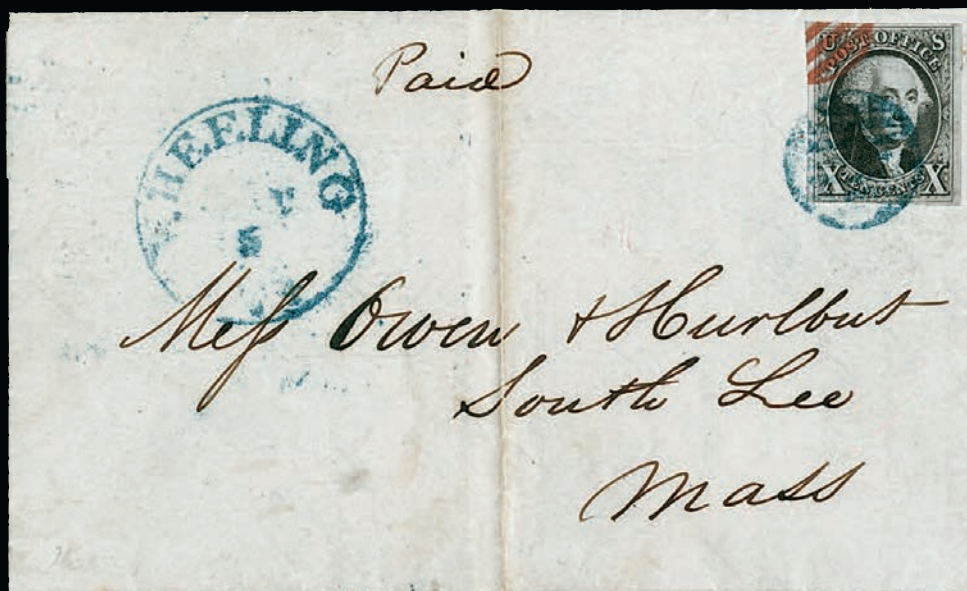 Paid
U POST OFFICE S
X TEN CENTS X
WHEELING
5
Mess Owen & Hurlbut
South Lee
Mass